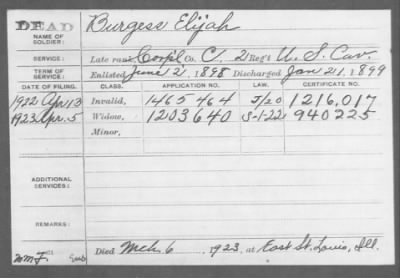 DEAD
NAME OF SOLDIER: Burgess Elijah
SERVICE: Late rank Corp'l Co. C, 2 Reg't U. S. Cav.
TERM OF SERVICE: Enlisted June 2, 1898 Discharged Jan 21, 1899
DATE OF FILING. CLASS. APPLICATION NO. LAW. CERTIFICATE NO.
1922 Apr 13 Invalid, 1465464 J/20 1216,017
1923 Apr. 5 Widow, 1203640 S-1-22 940225
Minor,
ADDITIONAL SERVICES:
REMARKS:
Died Mch. 6, 1923, at East St. Louis, Ill.